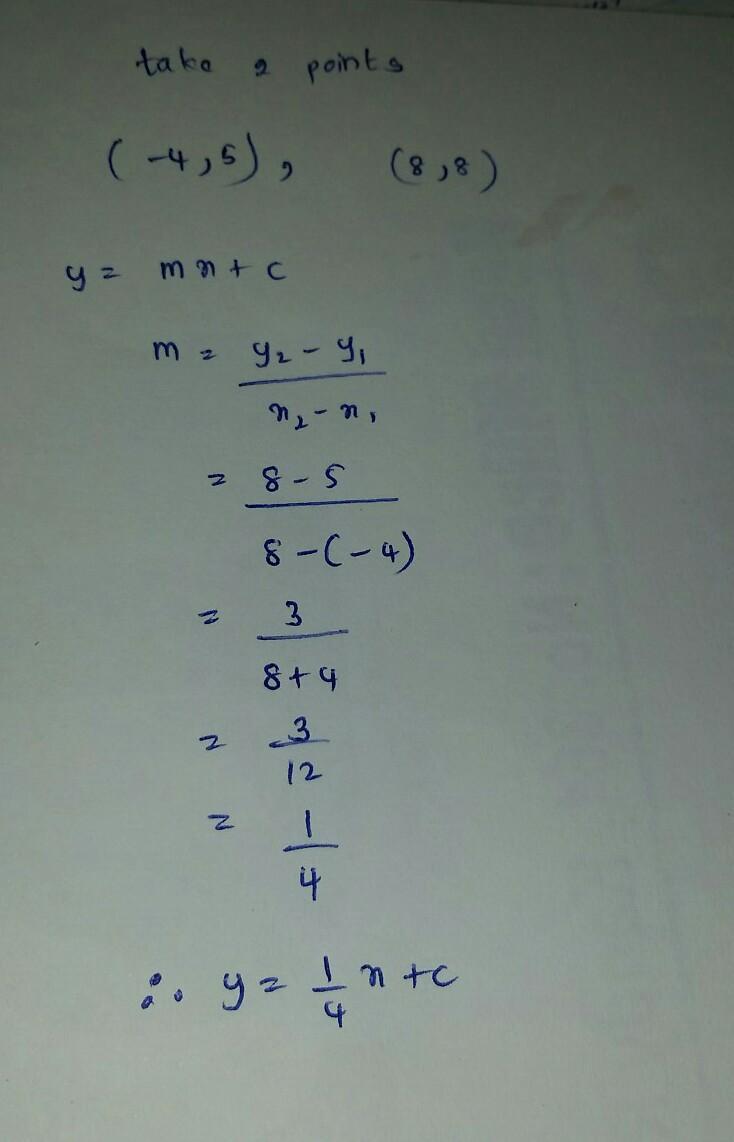 take 2 points
(-4,5), (8,8)
y = mx + c
m = y₂ - y₁
x₂ - x₁
= 8 - 5
8 - (-4)
= 3
8+4
= 3
12
= 1
4
∴ y = 1/4 x + c